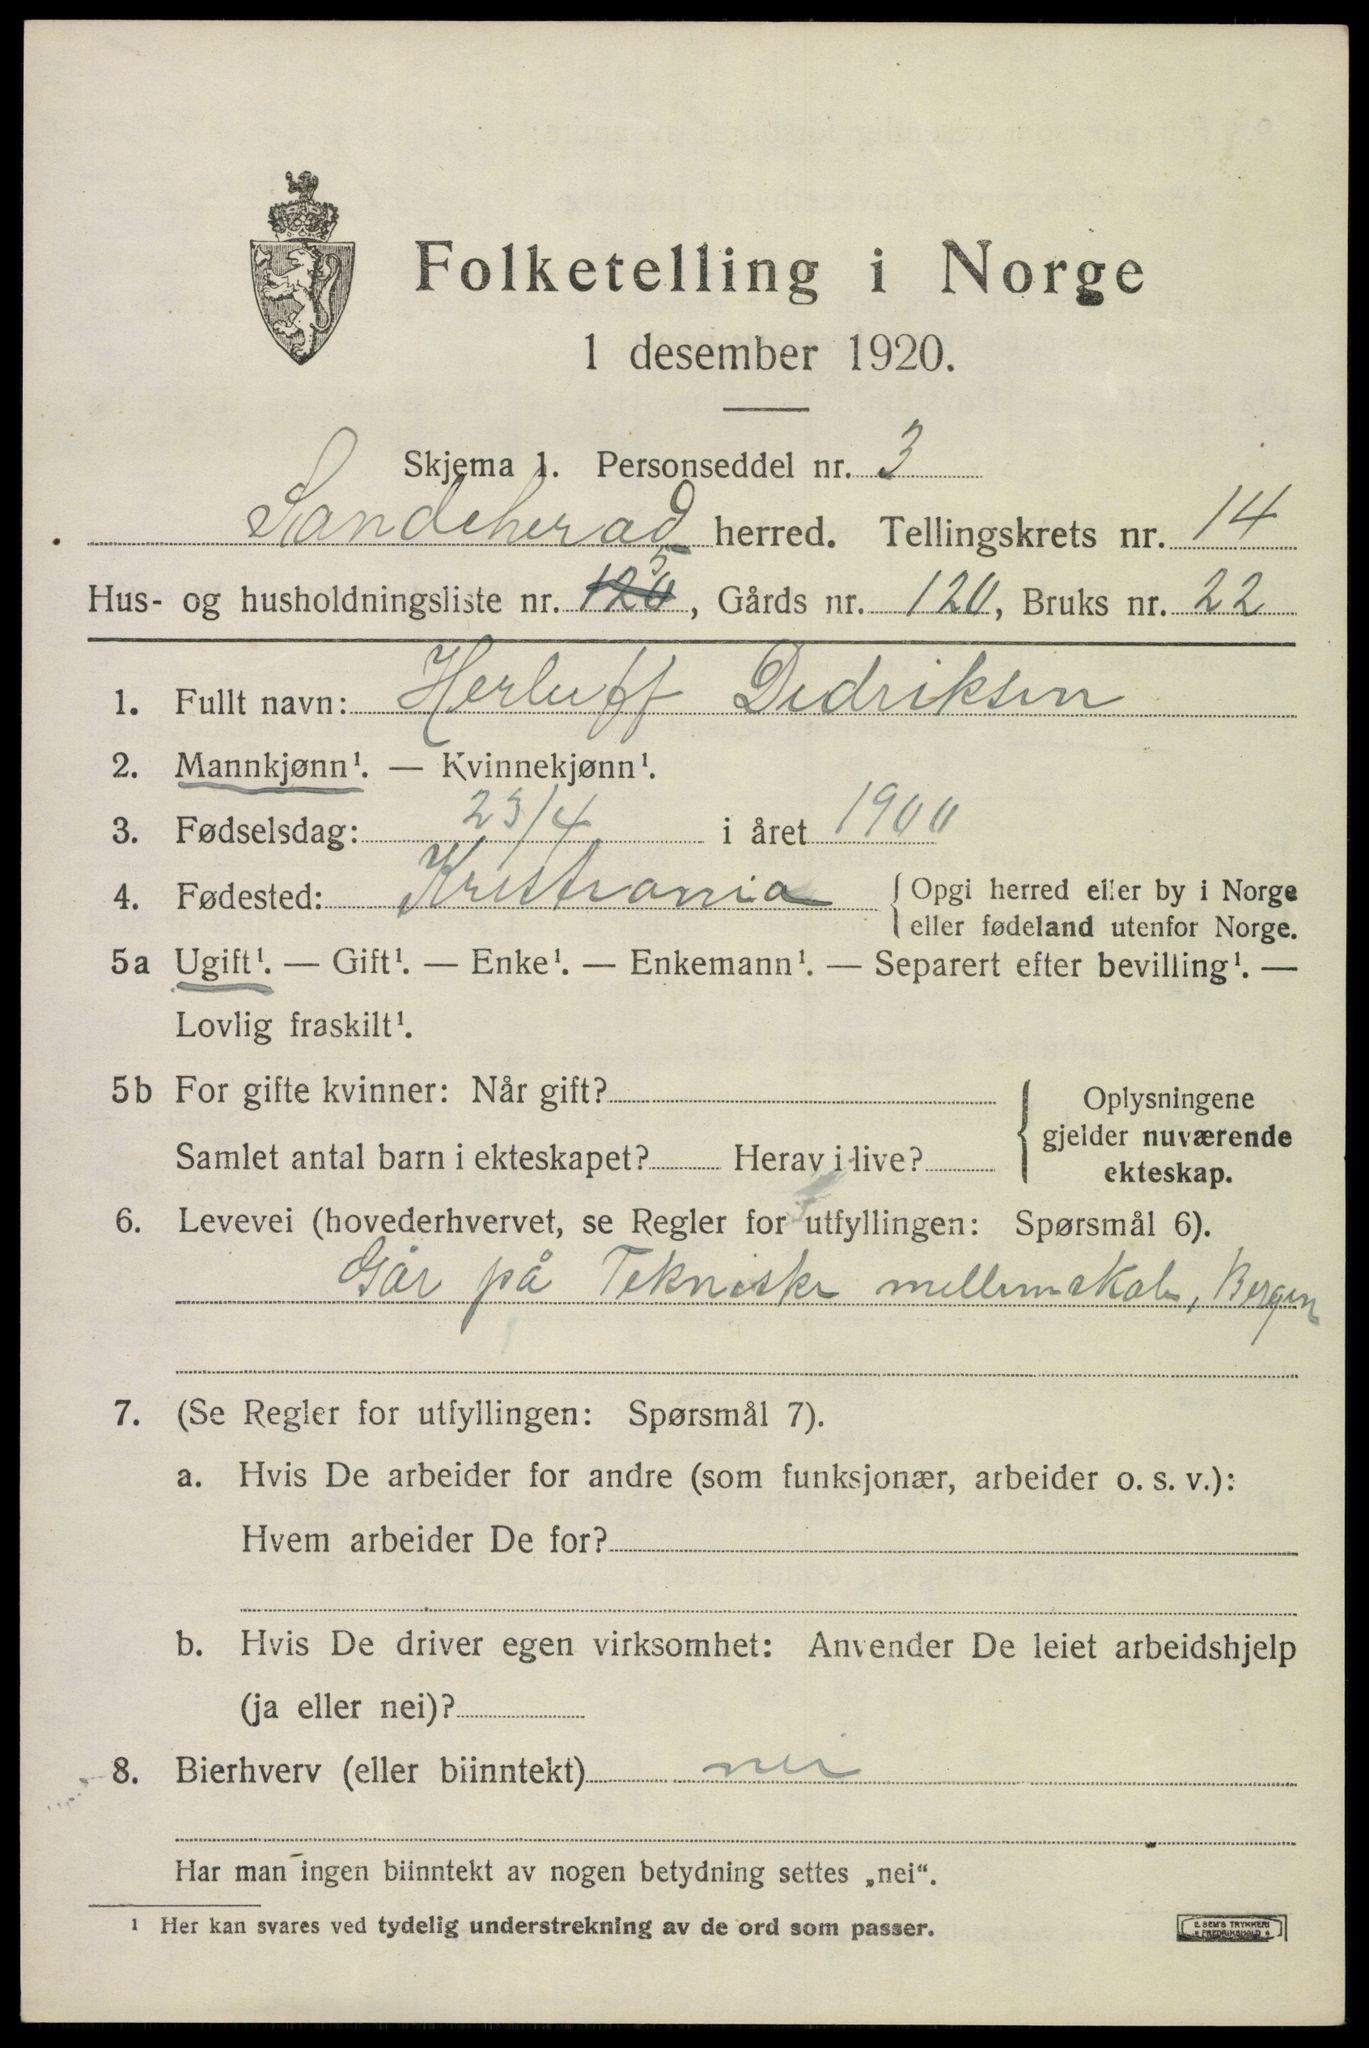 Folketelling i Norge
1 desember 1920.
Skjema 1. Personseddel nr. 3
Sandeherad herred. Tellingskrets nr. 14
5
Hus- og husholdningsliste nr. 120, Gårds nr. 120, Bruks nr. 22
1. Fullt navn: Herluff Didriksen
2. Mannkjønn¹. — Kvinnekjønn¹.
3. Fødselsdag: 23/4 i året 1900
4. Fødested: Kristiania { Opgi herred eller by i Norge
eller fødeland utenfor Norge.
5a Ugift¹. — Gift¹. — Enke¹. — Enkemann¹. — Separert efter bevilling¹. —
Lovlig fraskilt¹.
5b For gifte kvinner: Når gift?
Samlet antal barn i ekteskapet? Herav i live?
{ Oplysningene
gjelder nuværende
ekteskap.
6. Levevei (hovederhvervet, se Regler for utfyllingen: Spørsmål 6).
Går på Tekniske mellemskole, Bergen
7. (Se Regler for utfyllingen: Spørsmål 7).
a. Hvis De arbeider for andre (som funksjonær, arbeider o. s. v.):
Hvem arbeider De for?
b. Hvis De driver egen virksomhet: Anvender De leiet arbeidshjelp
(ja eller nei)?
8. Bierhverv (eller biinntekt) nei
Har man ingen biinntekt av nogen betydning settes „nei“.
¹ Her kan svares ved tydelig understrekning av de ord som passer.
E. SEM'S TRYKKERI
FREDRIKSHALD